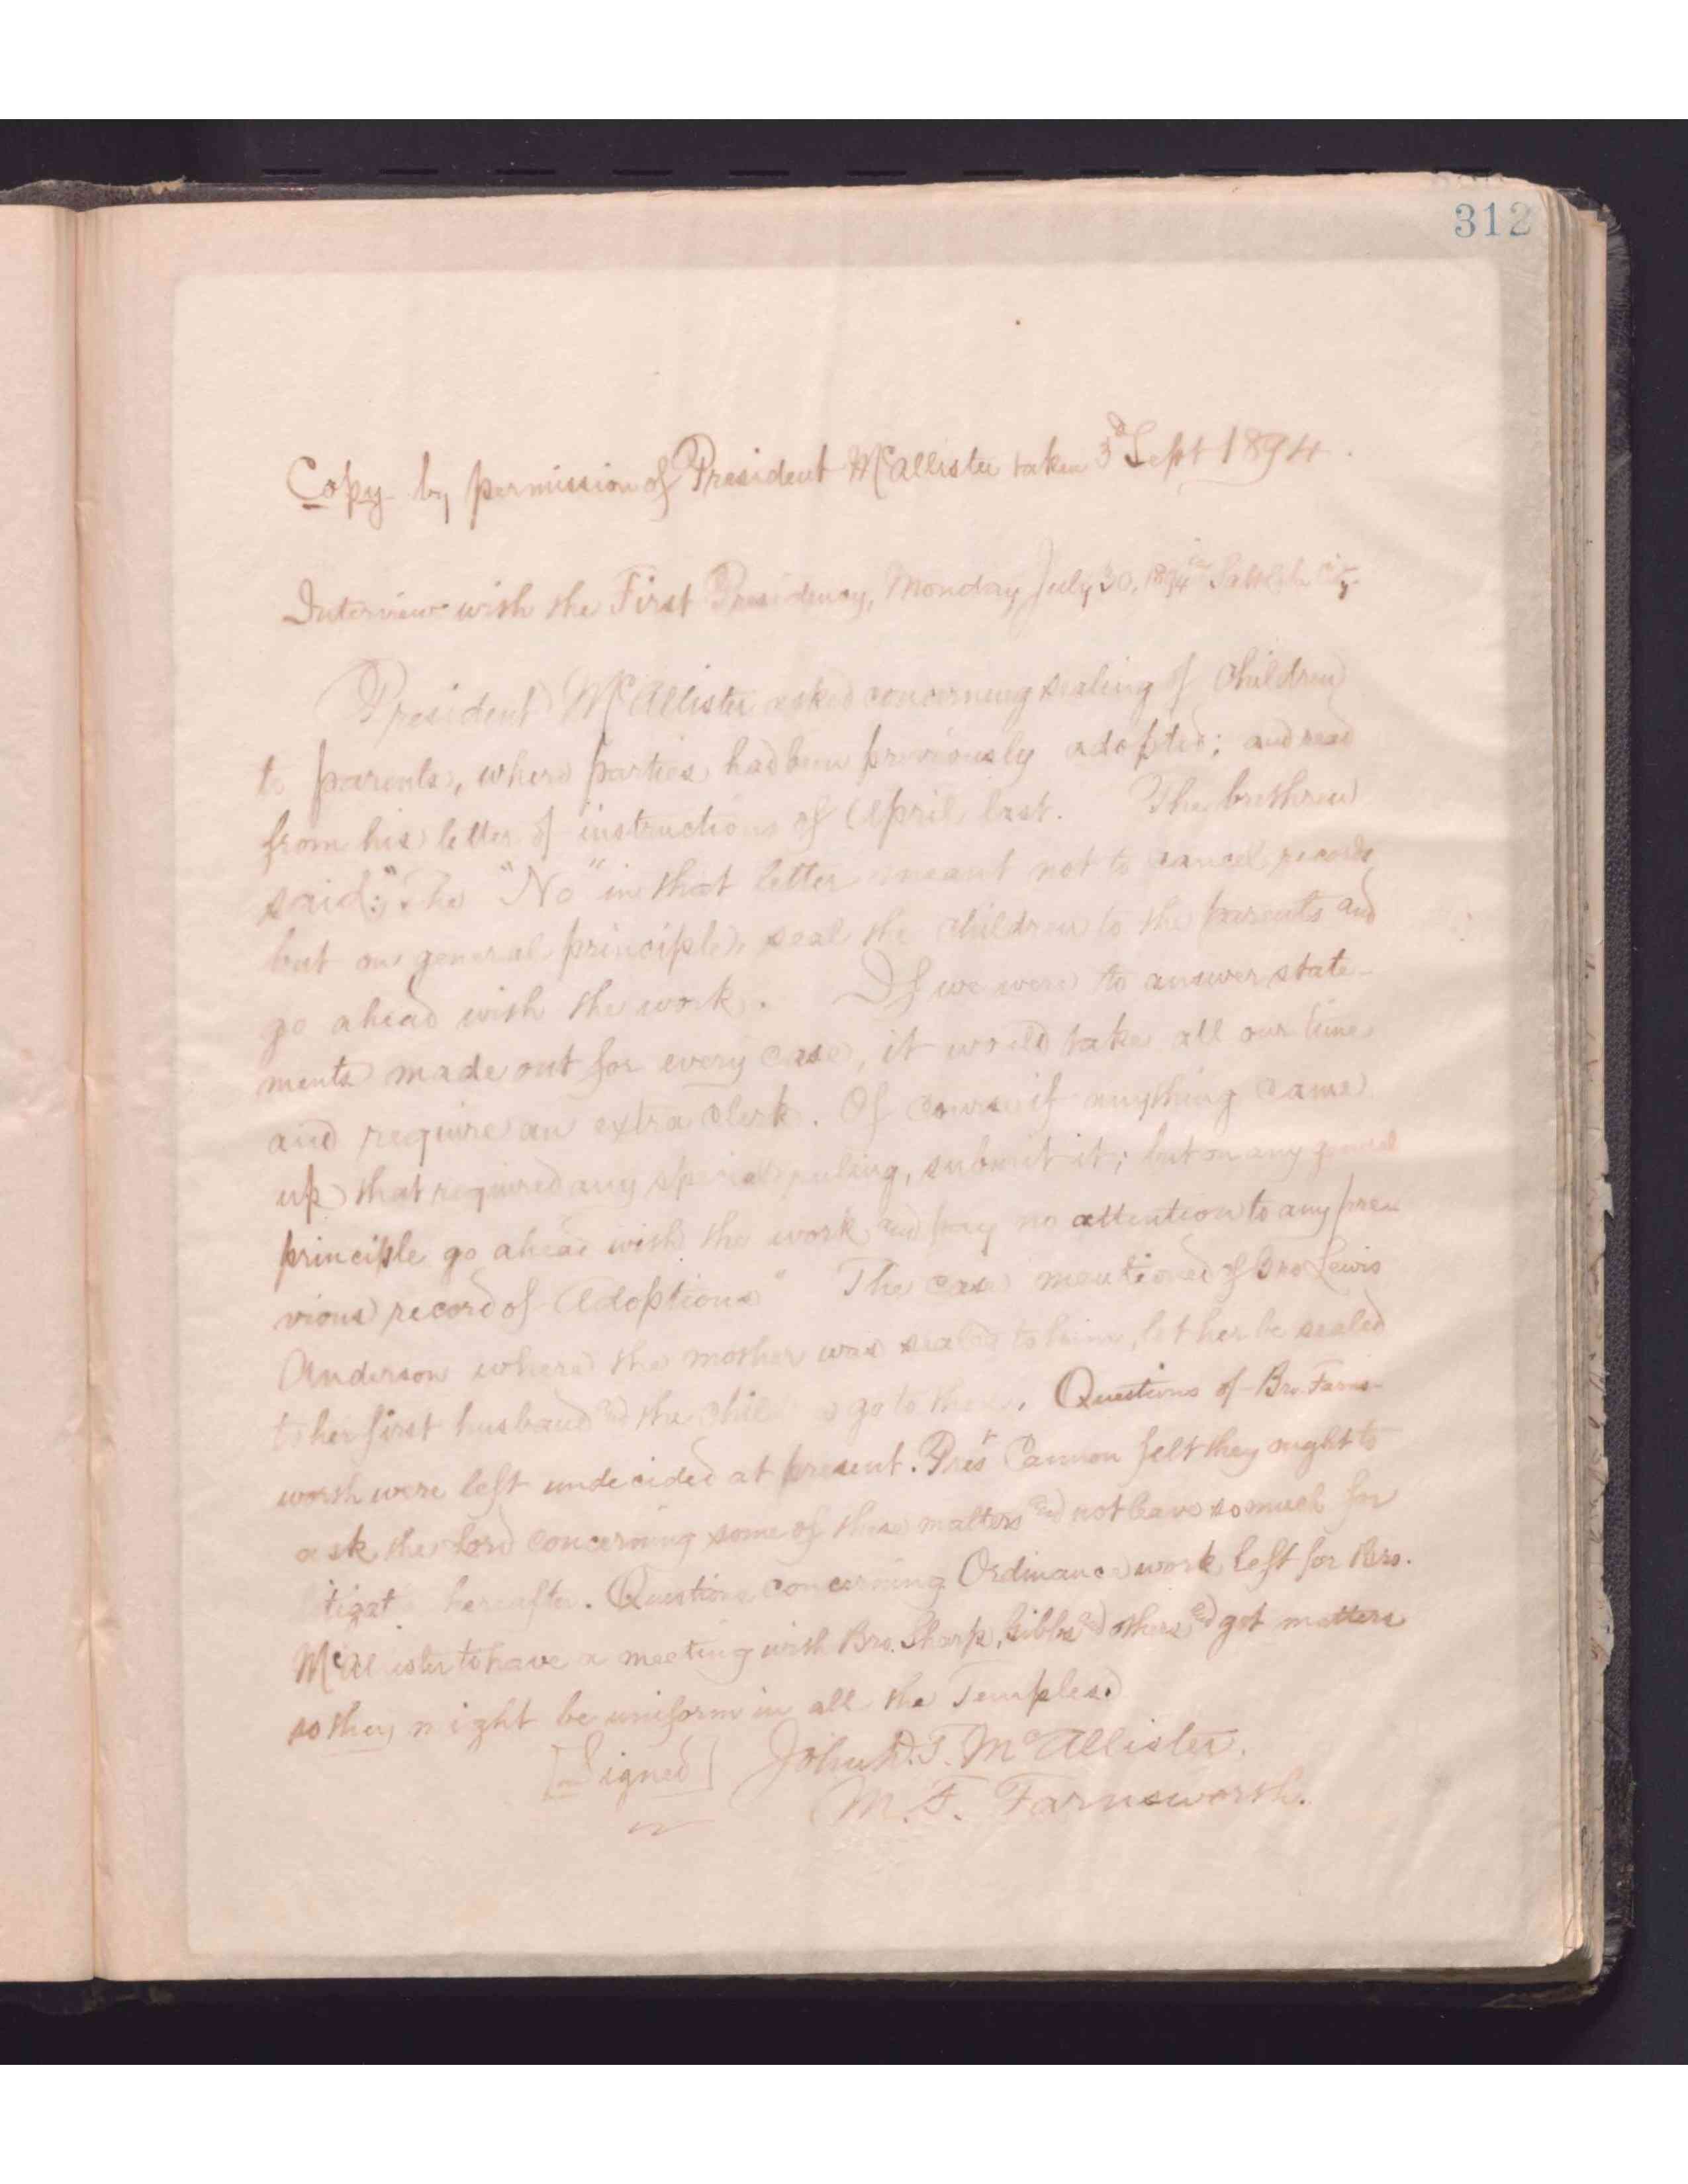 312
Copy by permission of President McAllister taken 3d Sept 1894.
Interview with the First Presidency, Monday July 30, 1894 Salt Lake City.
President McAllister asked concerning sealing of Children
to parents, where parties had been previously adopted; and read
from his letter of instructions of April last. The brethren
said: "The "No" in that letter meant not to cancel records
but on general principle, seal the children to the parents and
go ahead with the work. If we were to answer state-
ments made out for every case, it would take all our time
and require an extra clerk. Of course if anything came
up that required any special ruling, submit it; but on any general
principle go ahead with the work and pay no attention to any pre
vious record of Adoptions" The case mentioned of Bro Lewis
Anderson where the mother was sealed to him, let her be sealed
to her first husband and the go to them. Questions of Bro. Farns-
worth were left undecided at present. Prest Cannon felt they ought to
ask the Lord concerning some of these matters and not leave so much for
hereafter. Questions concerning Ordinance work left for Bro.
McAllister to have a meeting with Bro. Sharp, Gibbs and others and get matters
so they might be uniform in all the Temples.
[Signed] John D. T. McAllister.
M. F. Farnsworth.